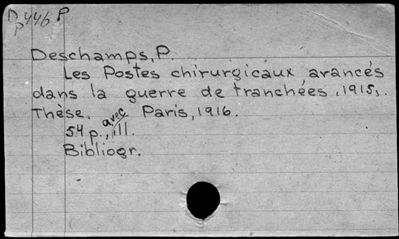 Dp446P
Deschamps, P.
Les Postes chirurgicaux avancés
dans la guerre de tranchées, 1915,.
Thèse. Paris, 1916.
54 p., avec ill.
Bibliogr.